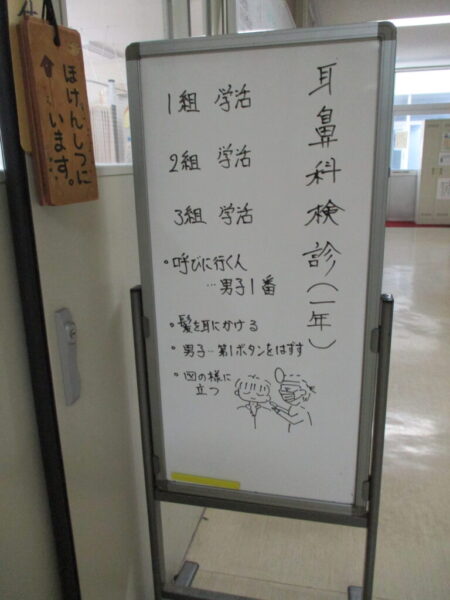 耳鼻科検診(一年)
1組 学活
2組 学活
3組 学活
・呼びに行く人
…男子1番
・髪を耳にかける
・男子…第1ボタンをはずす
・図の様に
立つ
ほけんしつに
います。